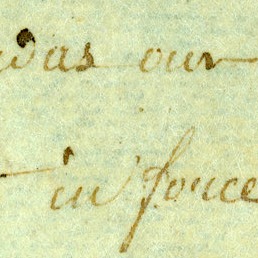 das our
in force